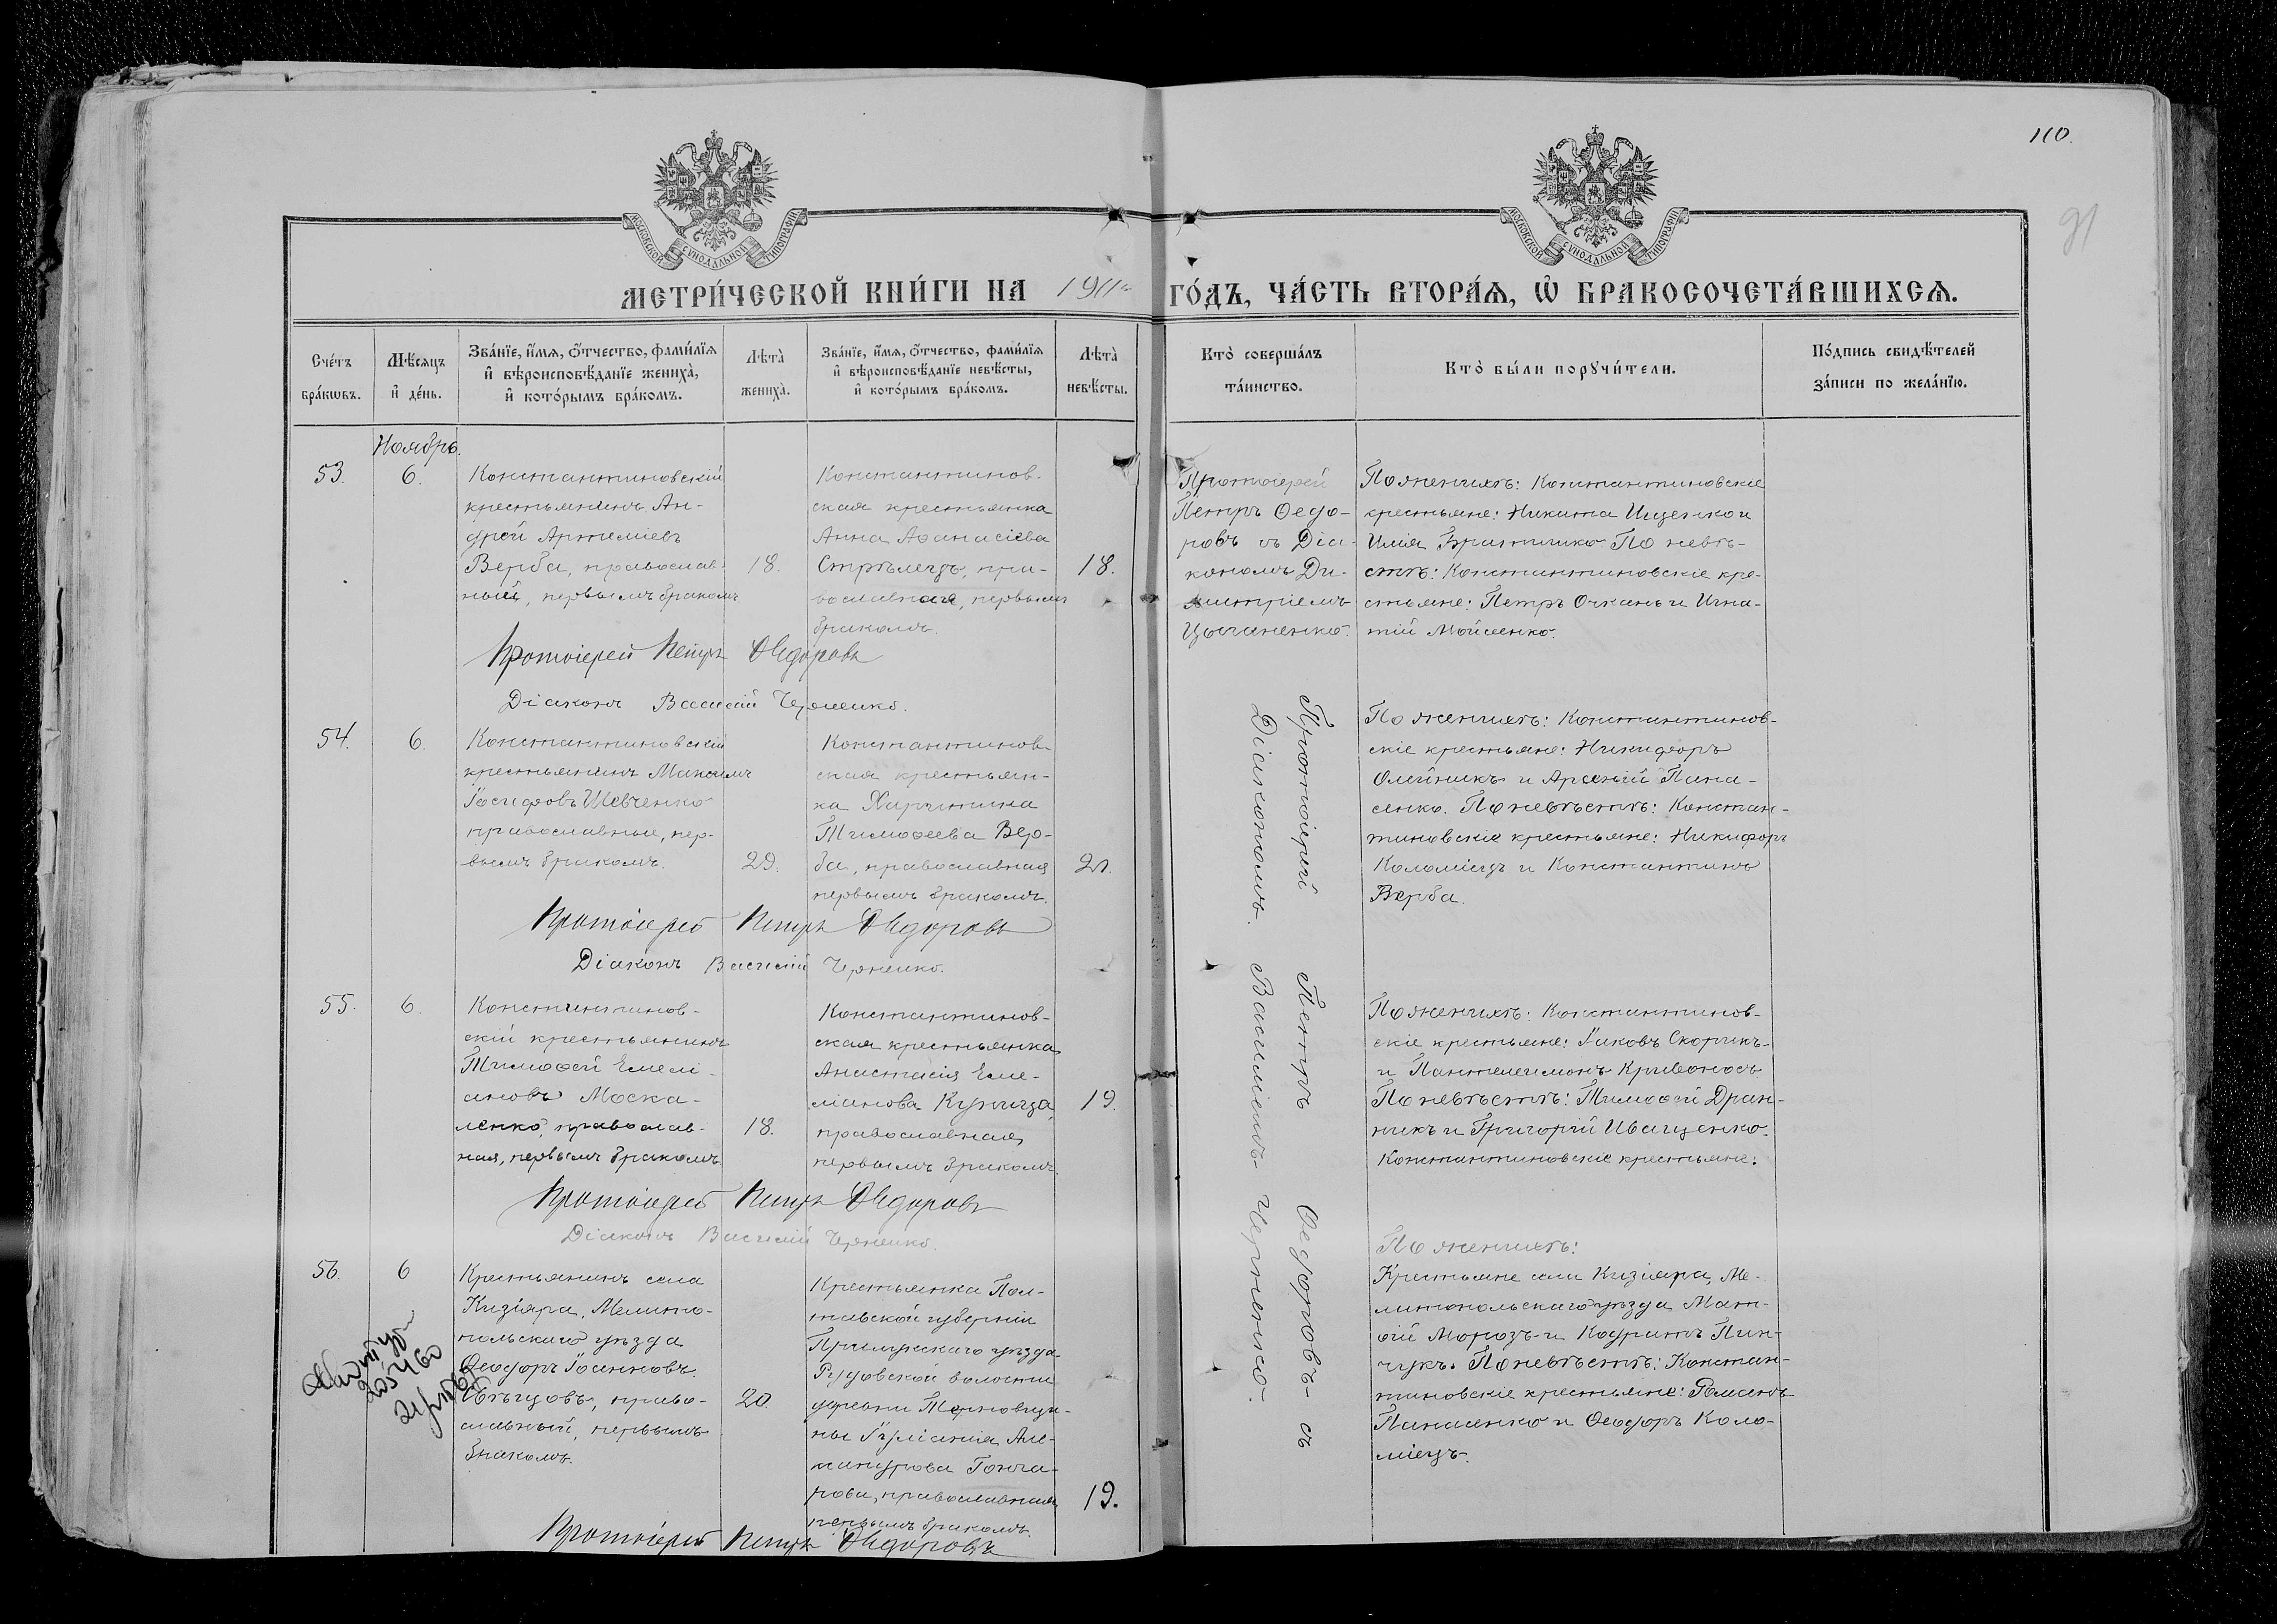 110.
91
МОСКОВСКОЙ СѴНОДАЛЬНОЙ ТИПОГРАФІИ
МОСКОВСКОЙ СѴНОДАЛЬНОЙ ТИПОГРАФІИ
МЕТРИ́ЧЕСКОЙ КНИ́ГИ НА 1911 ГО́ДЪ, ЧА́СТЬ ВТОРА́Я, Ѡ БРАКОСОЧЕТА́ВШИХСЯ.
Сче́тъ бра́кѡвъ.
Мѣ́сяцъ и҆ де́нь.
Зва́нїе, и҆́мя, ѻ҆́тчество, фами́лїя и҆ вѣроисповѣ́данїе жениха̀, и҆ кото́рымъ бра́комъ.
Лѣта̀ жениха̀.
Зва́нїе, и҆́мя, ѻ҆́тчество, фами́лїя и҆ вѣроисповѣ́данїе невѣ́сты, и҆ кото́рымъ бра́комъ.
Лѣта̀ невѣ́сты.
Кто̀ соверша́лъ та́инство.
Кто̀ бы́ли порꙋчи́тели.
По́дпись свидѣ́телей за́писи по жела́нїю.
Ноябрь.
53.
6.
Константиновскій
крестьянинъ Ан-
дрей Артеміевъ
Верба, православ-
ный, первымъ бракомъ
18.
Константинов-
ская крестьянка
Анна Аѳанасіева
Стрѣлецъ, пра-
вославная, первымъ
бракомъ.
18.
Протоіерей
Петръ Ѳедо-
ровъ съ Діа-
кономъ Ди-
митріемъ
Цыганенко.
По женихѣ: Константиновскіе
крестьяне: Никита Ищенко и
Илія Братишко. По невѣ-
стѣ: Константиновскіе кре-
стьяне: Петръ Очкань и Игна-
тій Мойсенко.
Протоіерей Петръ Ѳедоровъ
Діаконъ Василій Черненко.
54.
6.
Константиновскій
крестьянинъ Максимъ
Іосифовъ Шевченко
православные, пер-
вымъ бракомъ.
29.
Константинов-
ская крестьян-
ка Харитина
Тимоѳеева Вер-
ба, православная
первымъ бракомъ.
21.
По женихѣ: Константинов-
скіе крестьяне: Никифоръ
Олейникъ и Арсеній Пана-
сенко. По невѣстѣ: Констан-
тиновскіе крестьяне: Никифоръ
Коломіецъ и Константинъ
Верба.
Протоіерей Петръ Ѳедоровъ
Діаконъ Василій Черненко.
55.
6.
Константинов-
скій крестьянинъ
Тимоѳей Емелі-
ановъ Моска-
ленко, православ-
ная, первымъ бракомъ
18.
Константинов-
ская крестьянка
Анастасія Еме-
ліанова Куница
православная,
первымъ бракомъ.
19.
По женихѣ: Константинов-
скіе крестьяне: Іаковъ Скорикъ
и Пантелеимонъ Кривонось
По невѣстѣ: Тимоѳей Дран-
никъ и Григорій Иващенко.
Константиновскіе крестьяне:
Протоіерей Петръ Ѳедоровъ
Діаконъ Василій Черненко.
Протоіерей Петръ Ѳедоровъ съ
Діакономъ Василіемъ Черненко.
56.
6
Крестьянинъ села
Кизіяра, Мелито-
польскаго уѣзда
Ѳеодоръ Іоанновъ
право-
славный, первымъ
бракомъ.
20.
Крестьянка Пол-
тавской губерніи
Прилукскаго уѣзда
Рудовской волости
деревни Терновщи-
ны Іуліанія Але-
ксандрова Гонча-
рова, православная
первымъ бракомъ.
19.
По женихѣ:
Крестьяне села Кизіяра, Ме-
литопольскаго уѣзда Мат-
ѳій Морозъ и Кодратъ Пин-
чукъ. По невѣстѣ: Констан-
тиновскіе крестьяне: Романъ
Панасенко и Ѳеодоръ Коло-
міецъ.
Протоіерей Петръ Ѳедоровъ